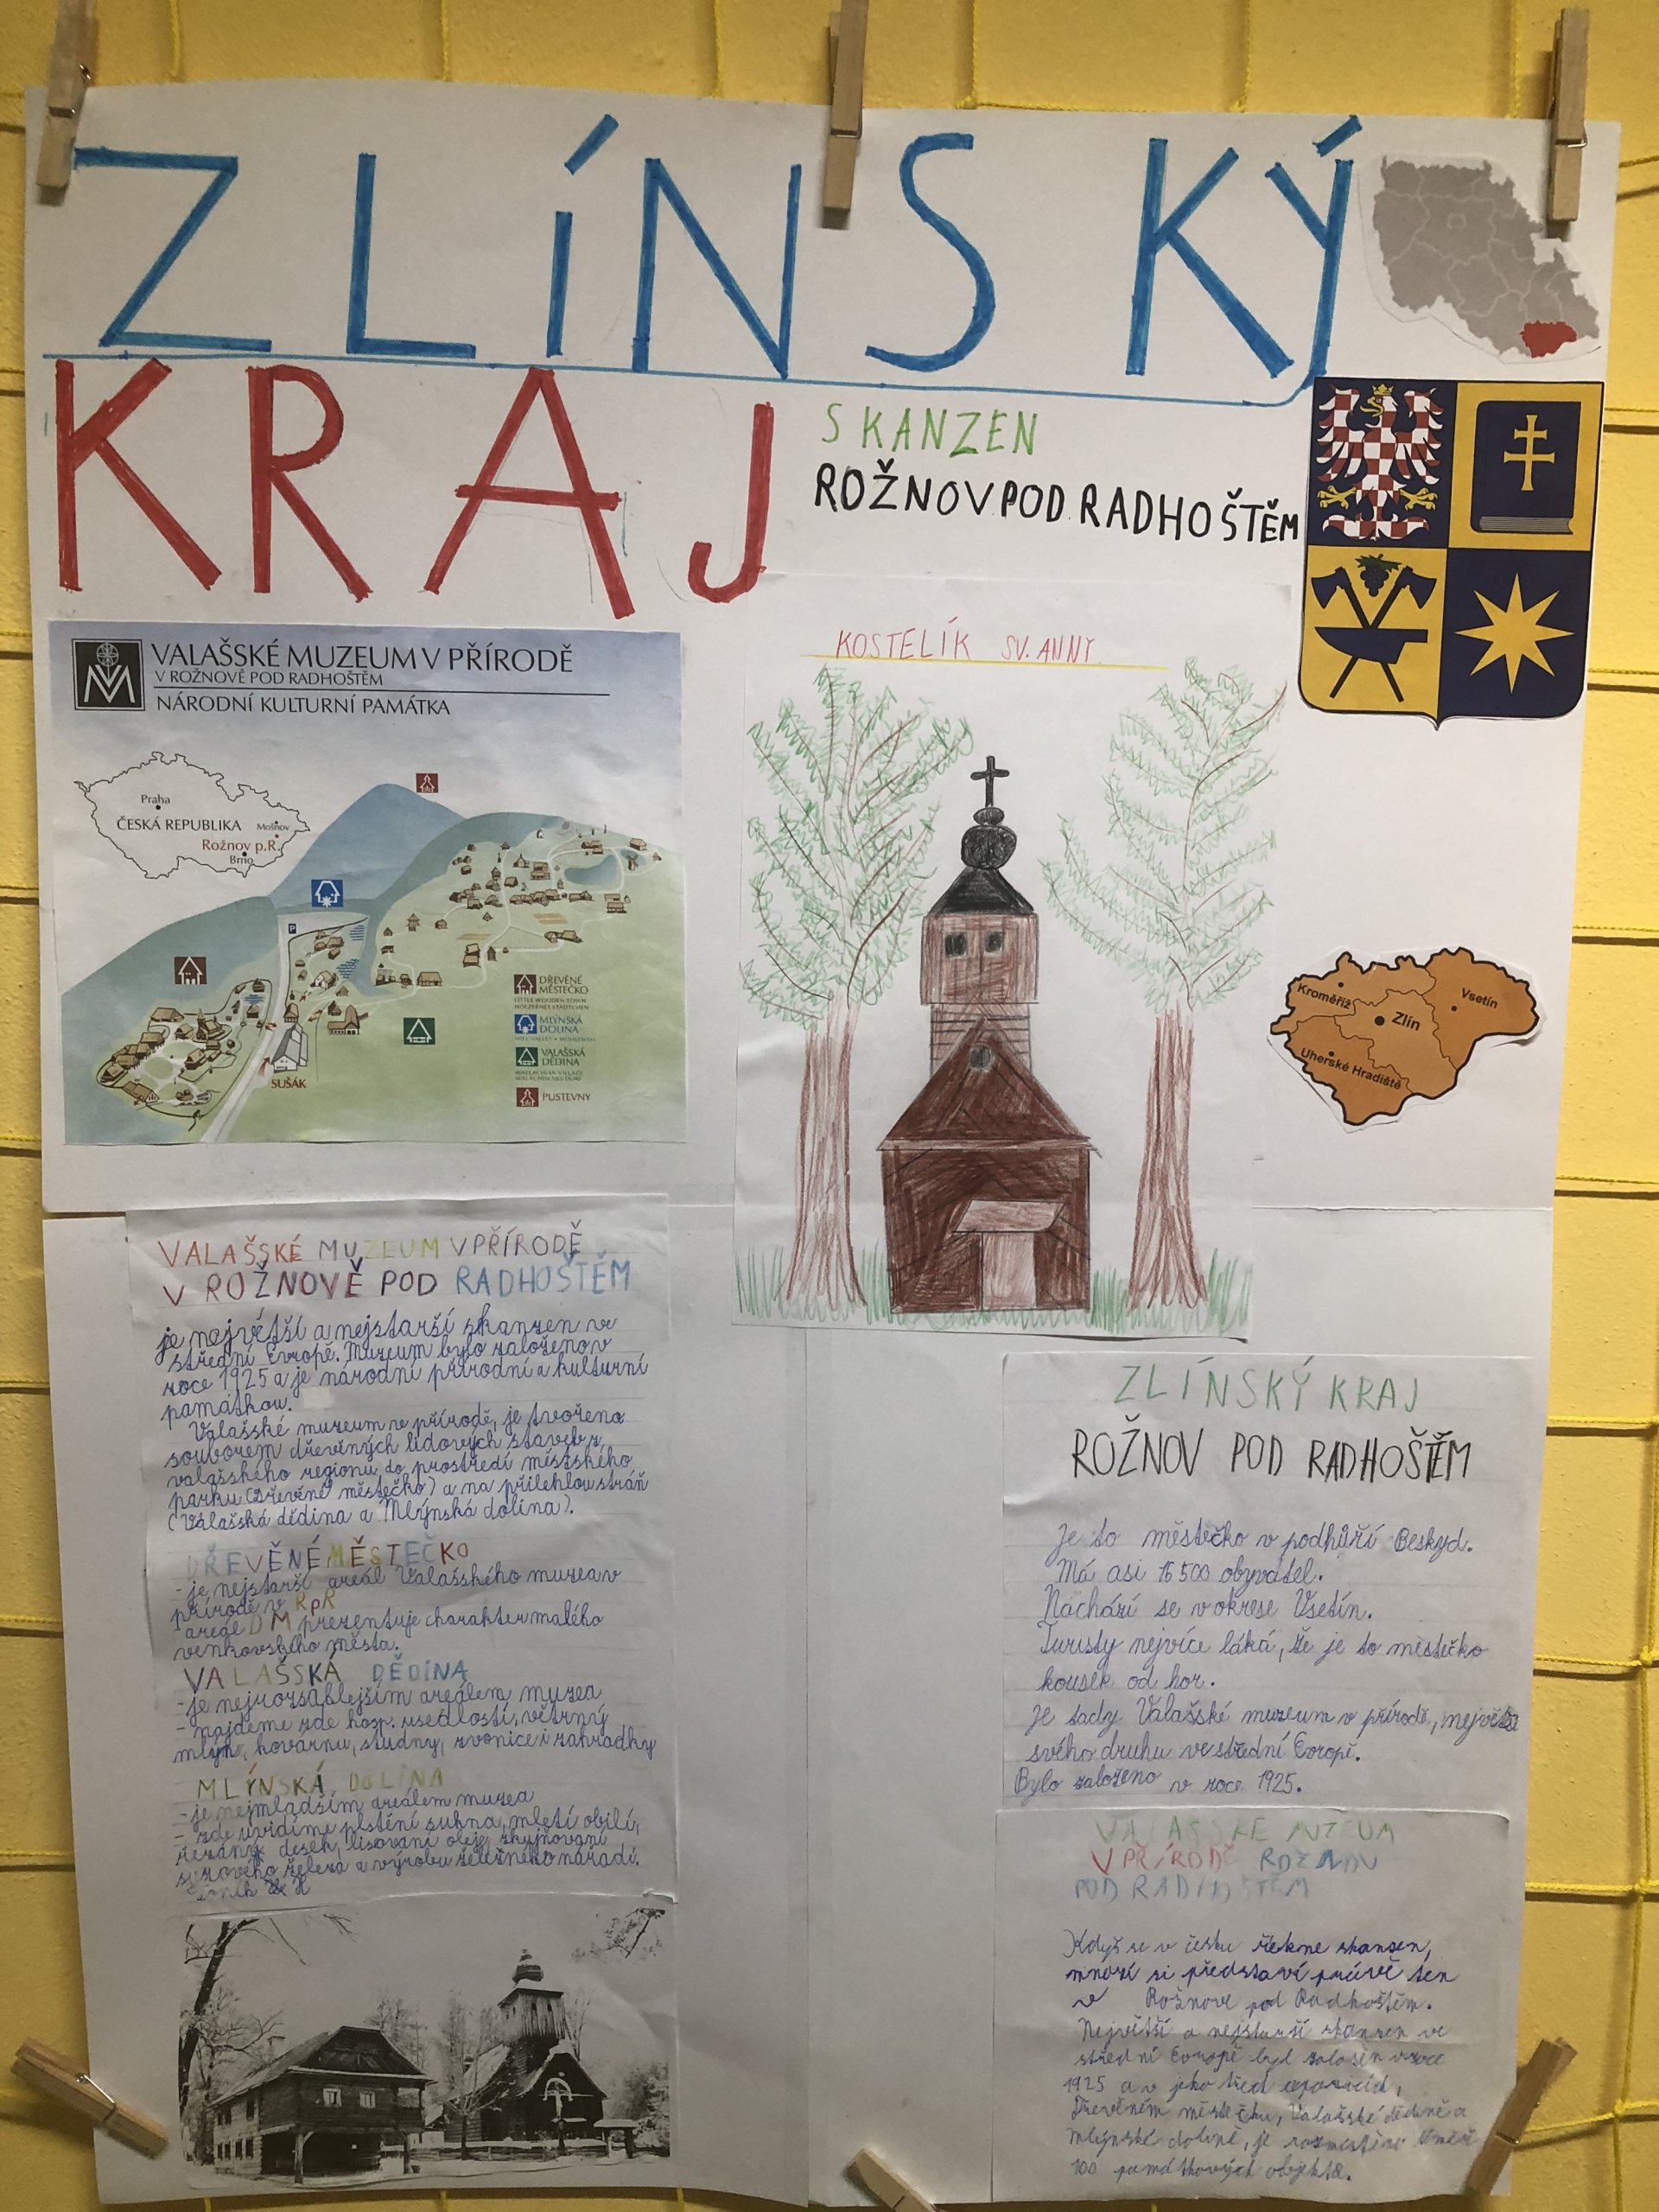 ZLÍNSKÝ
KRAJ
SKANZEN
ROŽNOV POD RADHOŠTĚM
VALAŠSKÉ MUZEUM V PŘÍRODĚ
V ROŽNOVĚ POD RADHOŠTĚM
NÁRODNÍ KULTURNÍ PAMÁTKA
Praha
ČESKÁ REPUBLIKA
Mošnov
Rožnov p.R.
Brno
P
SUŠÁK
DŘEVĚNÉ
MĚSTEČKO
LITTLE WOODEN TOWN
MLÝNSKÁ
DOLINA
VALAŠSKÁ
DĚDINA
PUSTEVNY
KOSTELÍK SV. ANNY
Kroměříž
Vsetín
Zlín
Uherské Hradiště
VALAŠSKÉ MUZEUM V PŘÍRODĚ
V ROŽNOVĚ POD RADHOŠTĚM
je největší a nejstarší skanzen ve
střední Evropě. Muzeum bylo založeno v
roce 1925 a je národní přírodní a kulturní
památkou.
Valašské muzeum v přírodě, je tvořeno
souborem dřevěných lidových staveb z
valašského regionu do prostředí městského
parku (Dřevěné městečko) a na přilehlou stráň
(Valašská dědina a Mlýnská dolina).
DŘEVĚNÉ MĚSTEČKO
- je nejstarší areál Valašského muzea v
přírodě v RpR
areál DM prezentuje charakter malého
venkovského města.
VALAŠSKÁ DĚDINA
- je nejrozsáhlejším areálem muzea
- najdeme zde hosp. usedlosti, větrný
mlýn, kovárnu, studny, zvonice i zahrádky
MLÝNSKÁ DOLINA
- je nejmladším areálem muzea
- zde uvidíme plstění sukna, mletí obilí,
řezání desek, lisování oleje, zkujňování
surového železa a výrobu železného nářadí.
ZLÍNSKÝ KRAJ
ROŽNOV POD RADHOŠTĚM
Je to městečko v podhůří Beskyd.
Má asi 16 500 obyvatel.
Nachází se v okrese Vsetín.
Turisty nejvíce láká, že je to městečko
kousek od hor.
Je tady Valašské muzeum v přírodě, největší
svého druhu ve střední Evropě.
Bylo založeno v roce 1925.
VALAŠSKÉ MUZEUM
V PŘÍRODĚ ROŽNOV
POD RADHOŠTĚM
Když se v česku řekne skanzen,
mnozí si představí právě ten
v Rožnově pod Radhoštěm.
Největší a nejstarší skanzen ve
střední Evropě byl založen v roce
1925 a v jeho třech expozicích,
Dřevěném městečku, Valašské dědině a
mlýnské dolině, je rozmístěno téměř
100 památkových objektů.